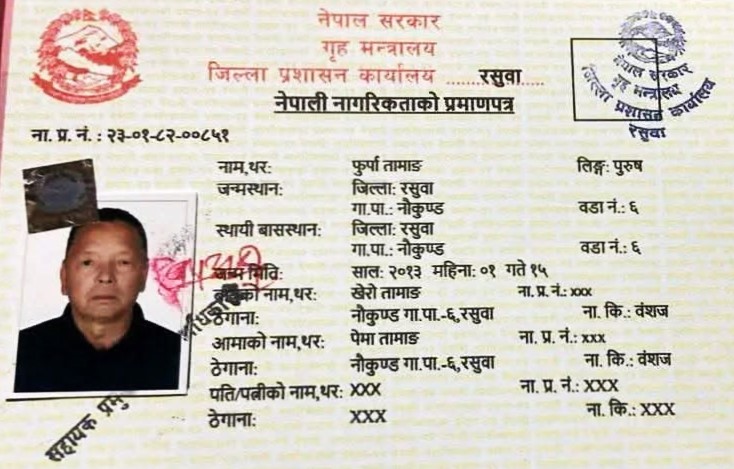 नेपाल सरकार
गृह मन्त्रालय
जिल्ला प्रशासन कार्यालय ........रसुवा.....
नेपाली नागरिकताको प्रमाणपत्र
नेपाल सरकार
गृह मन्त्रालय
जिल्ला प्रशासन कार्यालय
रसुवा
ना. प्र. नं. : २३-०१-८२-००८५१
नाम,थर: फुर्पा तामाङ लिङ्ग: पुरुष
जन्मस्थान: जिल्ला: रसुवा
गा.पा.: नौकुण्ड वडा नं.: ६
स्थायी बासस्थान: जिल्ला: रसुवा
गा.पा.: नौकुण्ड वडा नं.: ६
जन्म मिति: साल: २०१३ महिना: ०१ गते १५
को नाम,थर: खेरो तामाङ ना. प्र. नं.: xxx
ठेगाना: नौकुण्ड गा.पा.-६,रसुवा ना. कि.: वंशज
आमाको नाम,थर: पेमा तामाङ ना. प्र. नं.: xxx
ठेगाना: नौकुण्ड गा.पा.-६,रसुवा ना. कि.: वंशज
पति/पत्नीको नाम,थर: XXX ना. प्र. नं.: XXX
ठेगाना: XXX ना. कि.: XXX
सहायक प्रमु